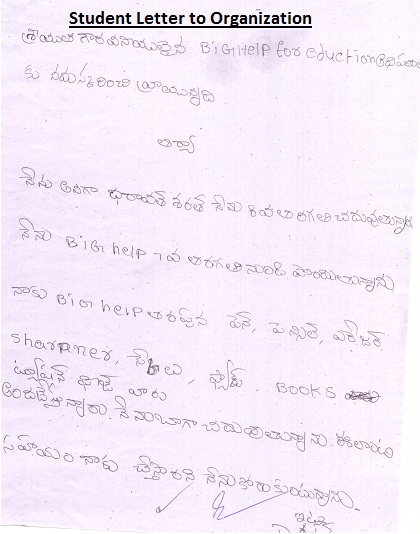 Student Letter to Organization
శ్రీయుత గౌరవనీయులైన BiG Help for eduction
కు నమస్కరించి వ్రాయునది
ఆర్యా
నేను అనగా ధరావత్ శరత్ నేను 8వ తరగతి చదువుతున్నాను
నేను BiG help 7వ తరగతి నుండి పొందుతున్నాను
నాకు BiG help తరఫున పెన్, పెన్సిల్, ఎరేజర్
sharpner, స్కేలు, ప్యాడ్, BOOKS
ట్యూషన్ ఫీజు వారు
అందజేస్తున్నారు. నేను బాగా చదువుతున్నాను. ఈలాంటి
సహాయం నాకు చేస్తారని నేను కోరుకుంటున్నాను.
ఇట్లు